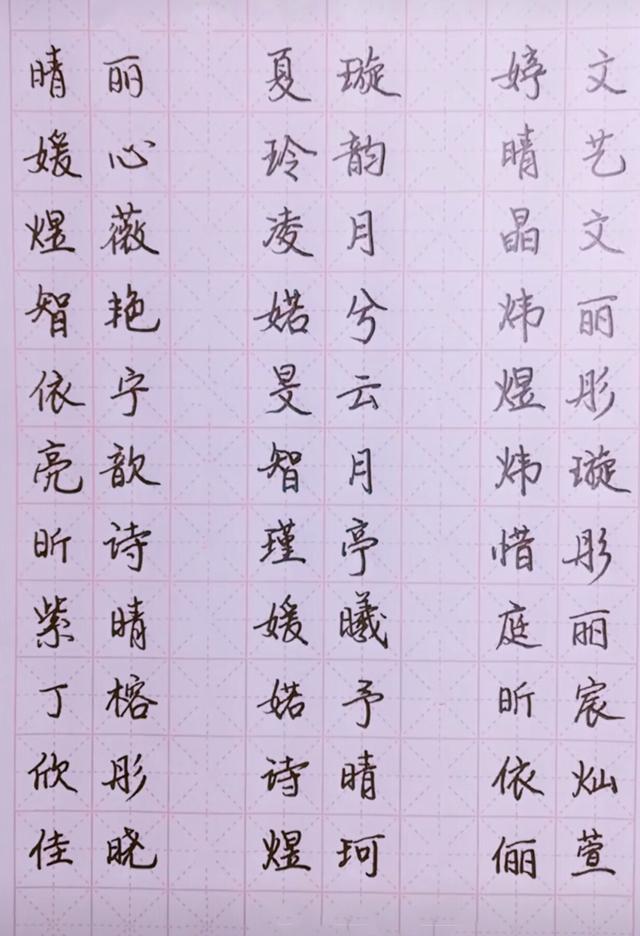 晴丽 夏璇 婷文
媛心 玲韵 晴艺
煜薇 凌月 晶文
智艳 婼兮 炜丽
依宁 旻云 煜彤
亮歆 智月 炜璇
昕诗 瑾亭 惜彤
紫晴 媛曦 庭丽
丁榕 婼予 昕宸
欣彤 诗晴 依灿
佳晓 煜珂 俪萱